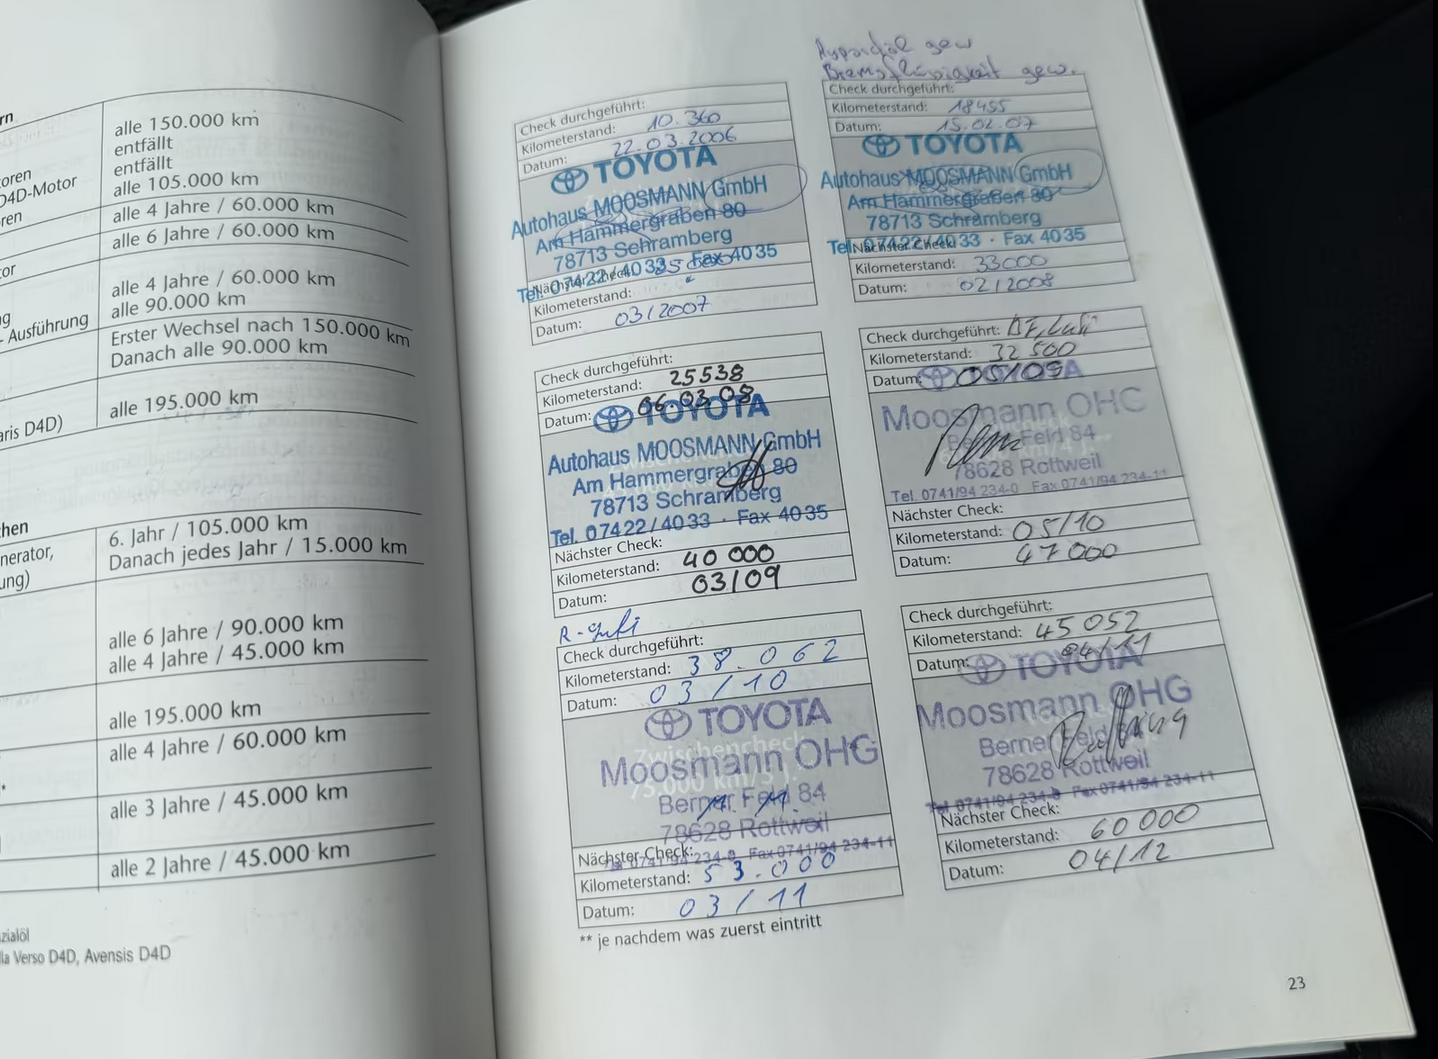 rn
alle 150.000 km
entfällt
oren
entfällt
D4D-Motor
alle 105.000 km
ren
alle 4 Jahre / 60.000 km
alle 6 Jahre / 60.000 km
or
alle 4 Jahre / 60.000 km
g
alle 90.000 km
- Ausführung
Erster Wechsel nach 150.000 km
Danach alle 90.000 km
aris D4D)
alle 195.000 km
hen
6. Jahr / 105.000 km
nerator,
Danach jedes Jahr / 15.000 km
ung)
alle 6 Jahre / 90.000 km
alle 4 Jahre / 45.000 km
alle 195.000 km
alle 4 Jahre / 60.000 km
*
alle 3 Jahre / 45.000 km
alle 2 Jahre / 45.000 km
zialöl
la Verso D4D, Avensis D4D
Check durchgeführt:
Kilometerstand: 10.360
Datum: 22.03.2006
TOYOTA
Autohaus MOOSMANN GmbH
Am Hammergraben 80
78713 Schramberg
Tel. 07422/4033 · Fax 4035
Nächster Check:
Kilometerstand:
Datum: 03/2007
gew
Bremsflüssigkeit gew.
Check durchgeführt:
Kilometerstand: 18455
Datum: 15.02.07
TOYOTA
Autohaus MOOSMANN GmbH
Am Hammergraben 80
78713 Schramberg
Tel. 07422/4033 · Fax 4035
Nächster Check:
Kilometerstand: 33000
Datum: 02/2008
Check durchgeführt:
Kilometerstand: 25538
Datum: 06.03.08
TOYOTA
Autohaus MOOSMANN GmbH
Am Hammergraben 80
78713 Schramberg
Tel. 07422/4033 · Fax 4035
Nächster Check:
Kilometerstand: 40 000
Datum: 03/09
Check durchgeführt:
Kilometerstand: 32 500
Datum: 05/09
TOYOTA
Moosmann OHG
Berner Feld 84
78628 Rottweil
Tel. 0741/94 234-0 Fax 0741/94 234-11
Nächster Check:
Kilometerstand: 05/10
Datum: 47 000
Check durchgeführt:
Kilometerstand: 38.062
Datum: 03/10
TOYOTA
Zwischencheck
75.000 km/5 J.
Moosmann OHG
Berner Feld 84
78628 Rottweil
Tel 0741/94 234-0 Fax 0741/94 234-11
Nächster Check:
Kilometerstand: 53.000
Datum: 03/11
Check durchgeführt:
Kilometerstand: 45 052
Datum: 04/11
TOYOTA
Moosmann OHG
Berner Feld
78628 Rottweil
Tel 0741/94 234-0 Fax 0741/94 234-11
Nächster Check:
Kilometerstand: 60 000
Datum: 04/12
** je nachdem was zuerst eintritt
23